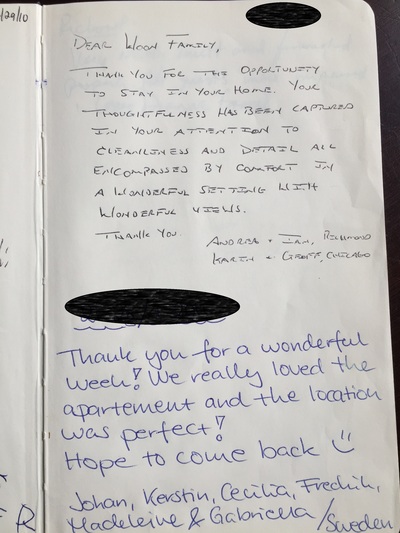 /29/10
DEAR WOON FAMILY,
THANK YOU FOR THE OPPORTUNITY
TO STAY IN YOUR HOME. YOUR
THOUGHTFULNESS HAS BEEN CAPTURED
IN YOUR ATTENTION TO
CLEANLINESS AND DETAIL ALL
ENCOMPASSED BY COMFORT IN
A WONDERFUL SETTING WITH
WONDERFUL VIEWS.
THANK YOU.
ANDREA + IAN, RICHMOND
KARIN + GEOFF, CHICAGO
Thank you for a wonderful
week! We really loved the
apartement and the location
was perfect!
Hope to come back
Johan, Kerstin, Cecilia, Fredrik,
Madeleine & Gabriella /Sweden